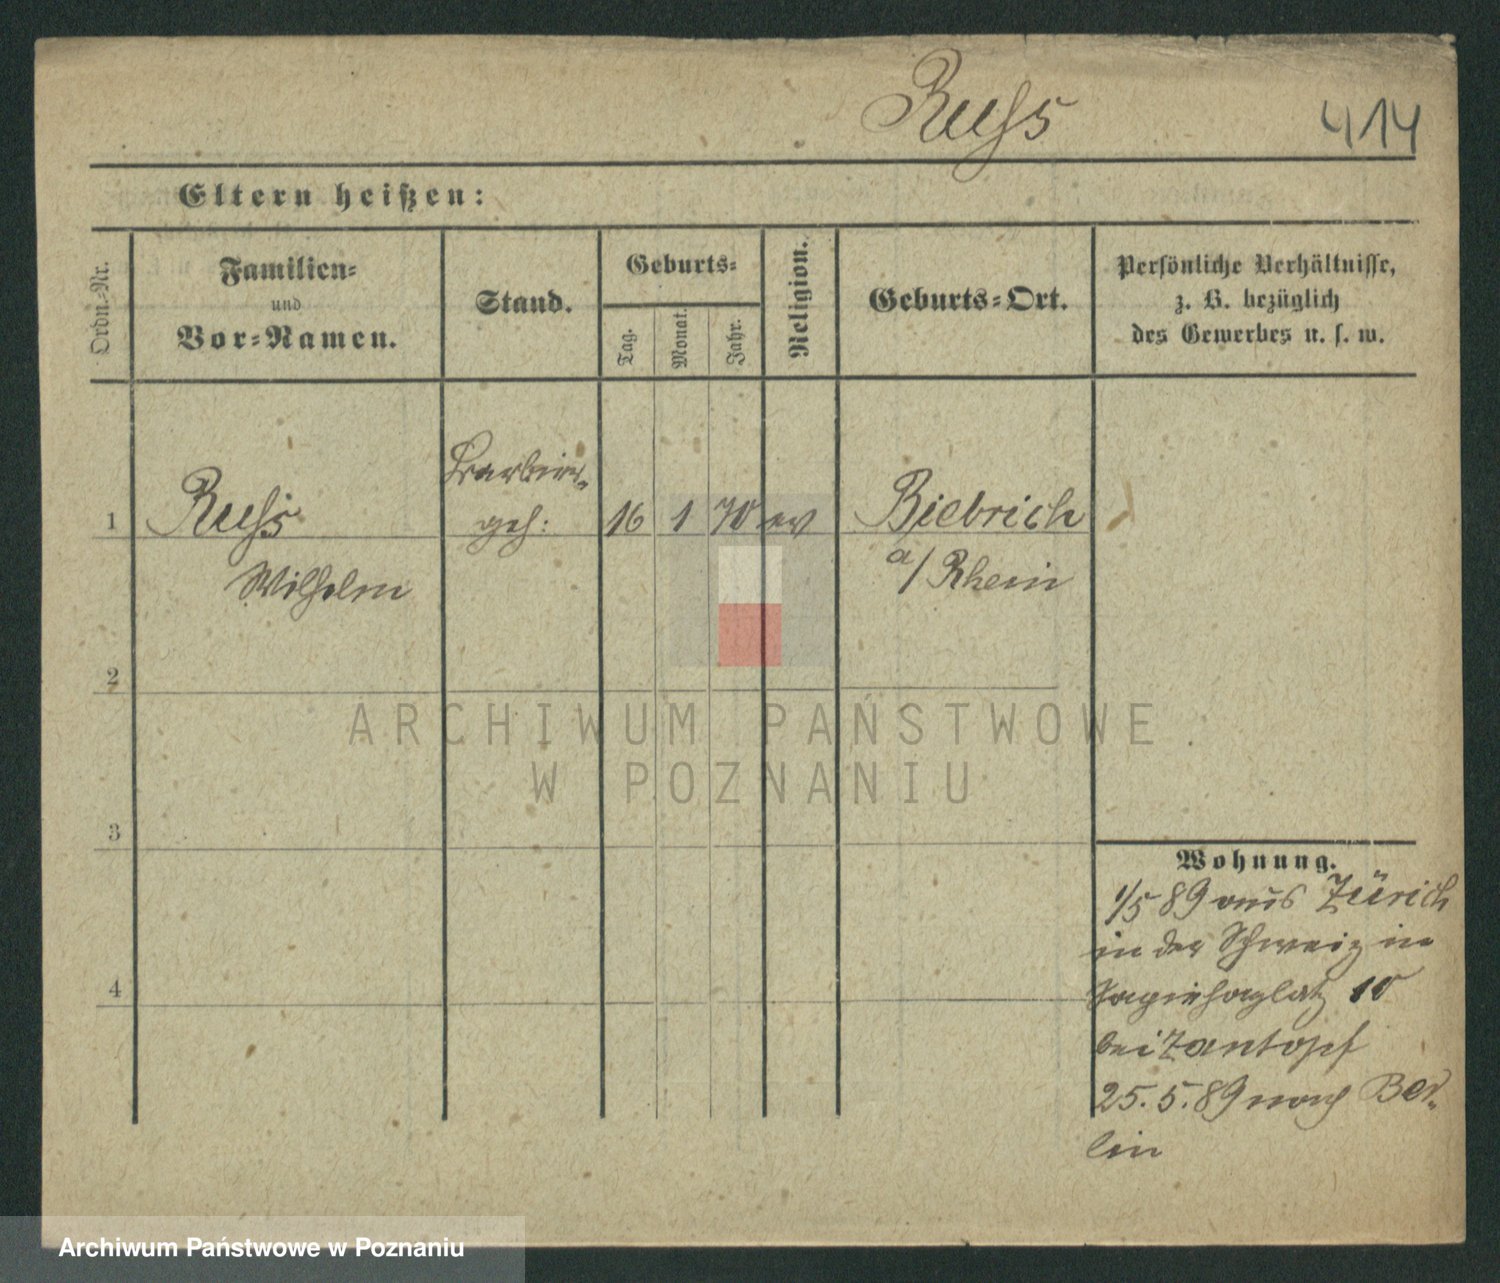 Ruß
414
Eltern heißen:
Ordn.-Nr.
Familien-
und
Vor-Namen.
Stand.
Geburts-
Tag.
Monat.
Jahr.
Religion.
Geburts-Ort.
Persönliche Verhältnisse,
z. B. bezüglich
des Gewerbes u. s. w.
1
Ruß
Wilhelm
Barbier-
geh:
16
1
70
ev
Biebrich
a/Rhein
2
3
4
Wohnung.
1/5 89 aus Zürich
in der Schweiz in
Sapiehaplatz 10
bei Zantopf
25.5.89 nach Ber-
lin
ARCHIWUM PAŃSTWOWE
W POZNANIU
Archiwum Państwowe w Poznaniu